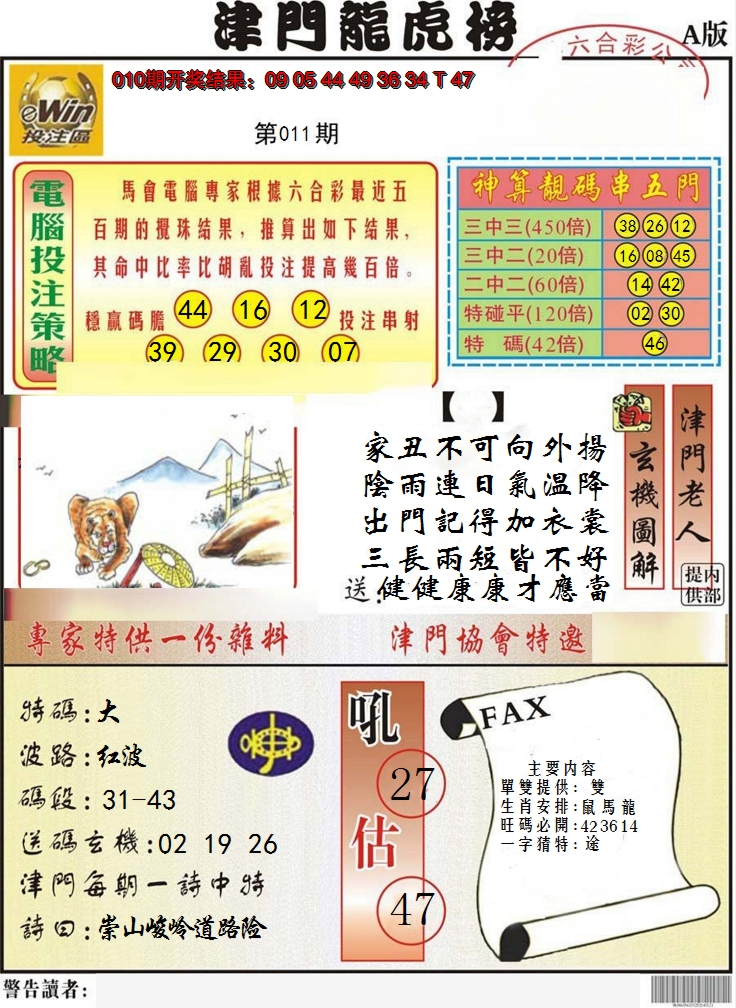 津門龍虎榜
A版
六合彩公
010期开奖结果：09 05 44 49 36 34 T 47
eWin
投注區
第011期
電腦投注策略
馬會電腦專家根據六合彩最近五
百期的攪珠结果，推算出如下结果，
其命中比率比胡亂投注提高幾百倍。
穩贏碼膽 44 16 12 投注串射
39 29 30 07
神算靚碼串五門
三中三(450倍) 38 26 12
三中二(20倍) 16 08 45
二中二(60倍) 14 42
特碰平(120倍) 02 30
特 碼(42倍) 46
【 】
家丑不可向外揚
陰雨連日氣溫降
出門記得加衣裳
三長兩短皆不好
送:健健康康才應當
玄機圖解
津門老人
内部提供
專家特供一份雜料
津門協會特邀
特碼:大
波路:红波
碼段:31-43
送碼玄機:02 19 26
津門每期一詩中特
詩曰:崇山峻岭道路险
吼
27
估
47
FAX
主要内容
單雙提供：雙
生肖安排:鼠馬龍
旺碼必開:423614
一字猜特：途
警告讀者：